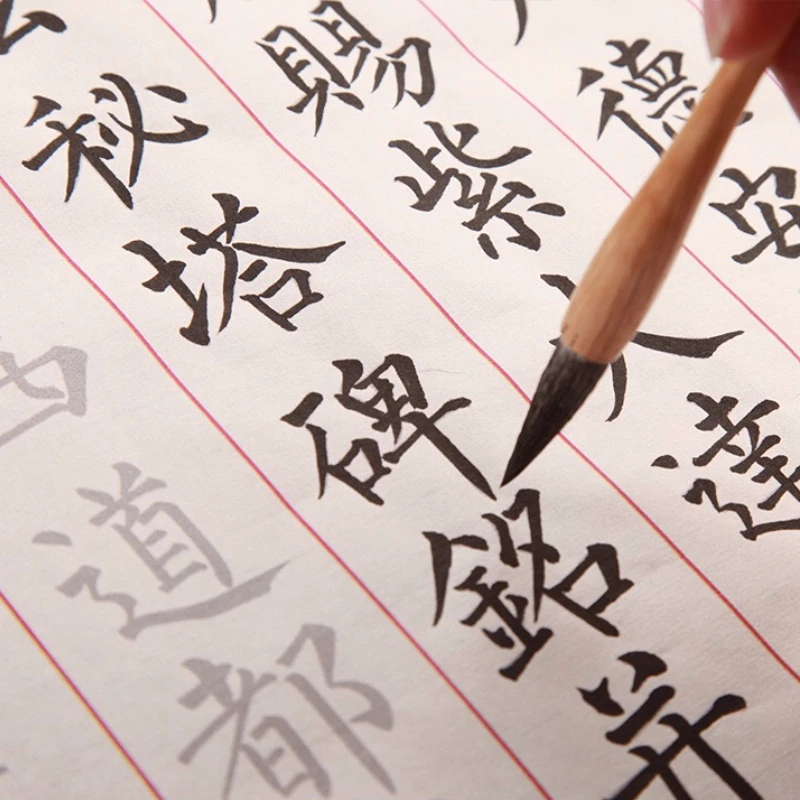 德安
賜紫大達
秘塔碑銘并
道都